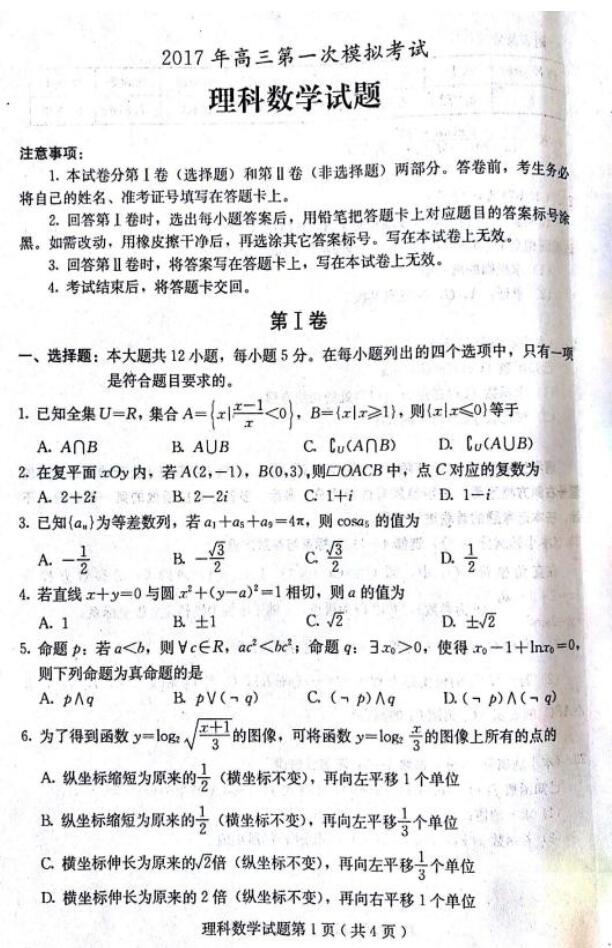 2017 年高三第一次模拟考试
理科数学试题
注意事项:
1. 本试卷分第Ⅰ卷(选择题)和第Ⅱ卷(非选择题)两部分。答卷前,考生务必
将自己的姓名、准考证号填写在答题卡上。
2. 回答第Ⅰ卷时,选出每小题答案后,用铅笔把答题卡上对应题目的答案标号涂
黑。如需改动,用橡皮擦干净后,再选涂其它答案标号。写在本试卷上无效。
3. 回答第Ⅱ卷时,将答案写在答题卡上,写在本试卷上无效。
4. 考试结束后,将答题卡交回。
第Ⅰ卷
一、选择题:本大题共 12 小题,每小题 5 分。在每小题列出的四个选项中,只有一项
是符合题目要求的。
1. 已知全集U=R,集合 A={x|(x-1)/x<0},B={x|x≥1},则{x|x≤0}等于
A. A∩B B. A∪B C. ∁U(A∩B) D. ∁U(A∪B)
2. 在复平面 xOy 内,若 A(2,-1),B(0,3),则▱OACB 中,点 C 对应的复数为
A. 2+2i B. 2-2i C. 1+i D. 1-i
3. 已知{aₙ}为等差数列,若 a₁+a₅+a₉=4π,则 cosa₅ 的值为
A. -1/2 B. -√3/2 C. √3/2 D. 1/2
4. 若直线 x+y=0 与圆 x²+(y-a)²=1 相切,则 a 的值为
A. 1 B. ±1 C. √2 D. ±√2
5. 命题 p:若 a<b,则∀c∈R,ac²<bc²;命题 q:∃x₀>0,使得 x₀-1+lnx₀=0,
则下列命题为真命题的是
A. p∧q B. p∨(¬q) C. (¬p)∧q D. (¬p)∧(¬q)
6. 为了得到函数 y=log₂√((x+1)/3)的图像,可将函数 y=log₂ x/3的图像上所有的点的
A. 纵坐标缩短为原来的1/2(横坐标不变),再向左平移 1 个单位
B. 纵坐标缩短为原来的1/2(横坐标不变),再向左平移1/3个单位
C. 横坐标伸长为原来的√2倍(纵坐标不变),再向左平移1/3个单位
D. 横坐标伸长为原来的 2 倍(纵坐标不变),再向右平移 1 个单位
理科数学试题第 1 页(共 4 页)